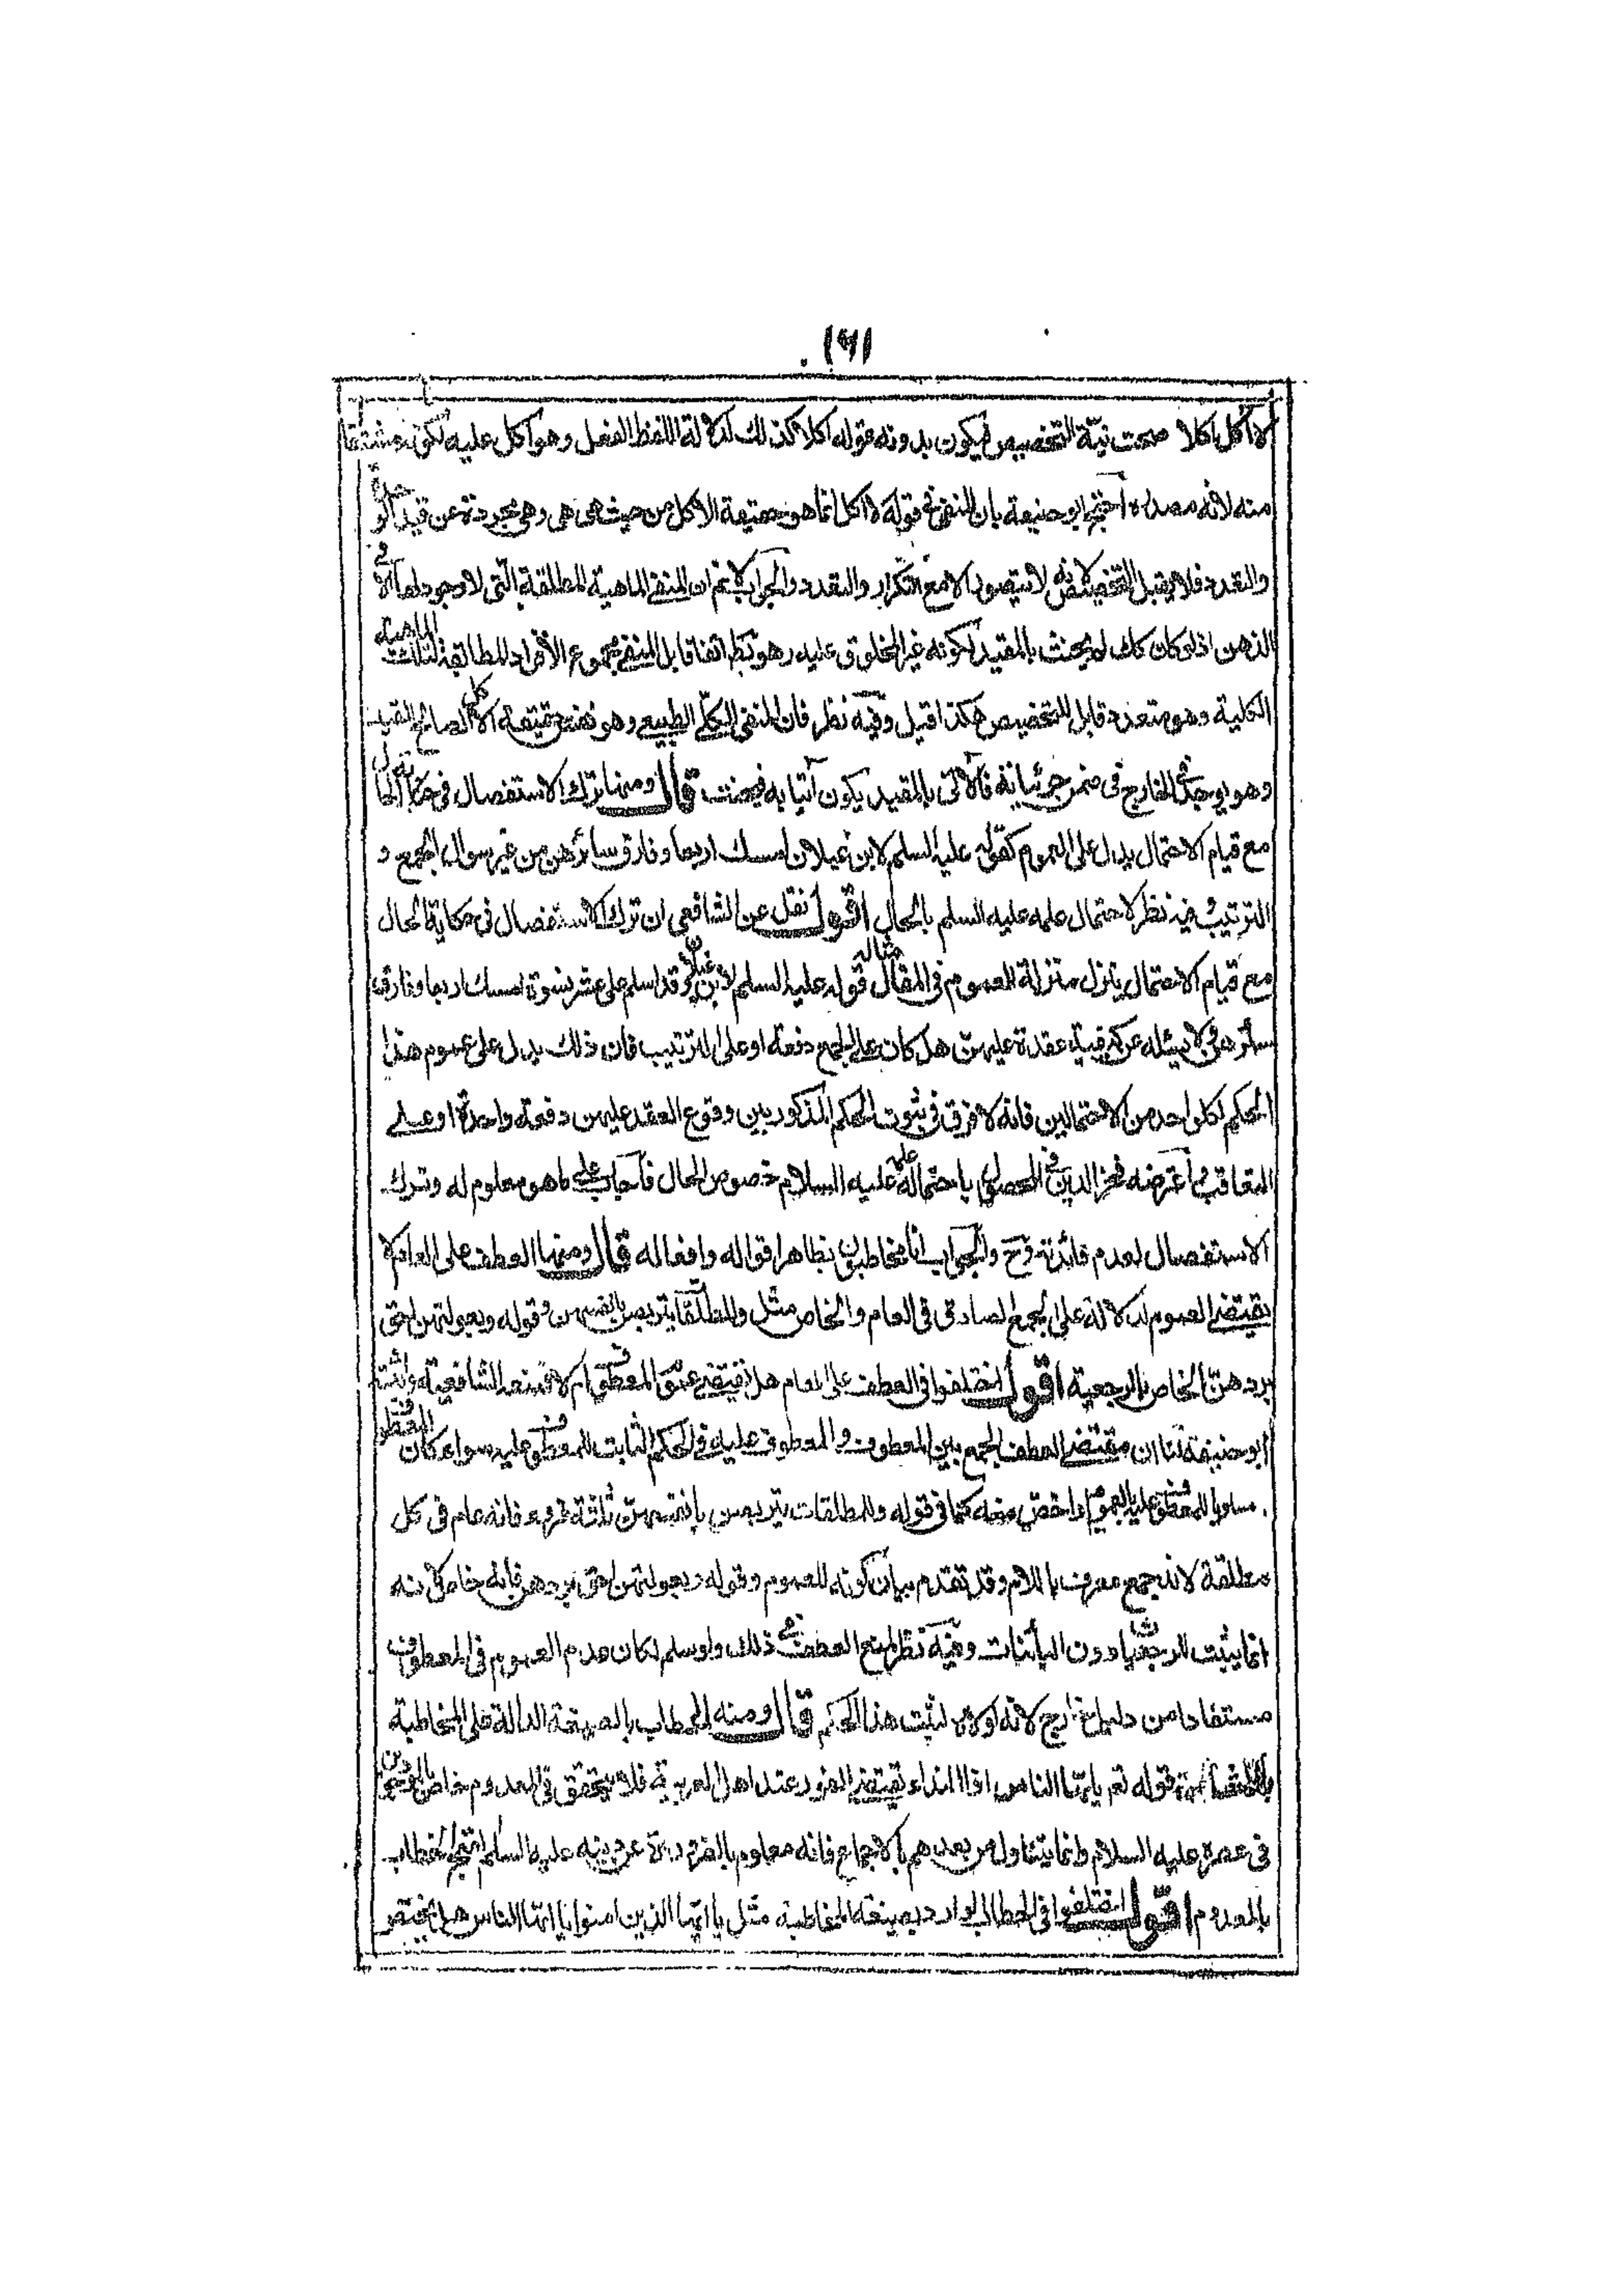 ١٦١
لا آكل اكلا صحت نيّة التخصيص فيكون بدونه قوله اكلا كذلك لدلالة اللفظ الفعل وهو آكل عليه لكونه مشتقا
منه لانه مصدره احتج ابو حنيفة بان النفى فى قوله لا اكل انما هو حقيقة الاكل من حيث هى هى وهى مجردة عن قيد الوحدة
والتعدد فلا يقبل التخصيص لانه لا يتصور الا مع التكرار والتعدد والجواب لا نم ان المنفى الماهية المطلقة التى لا وجود لها الا فى
الذهن اذ لو كان كك لم يحنث بالمقيد لكونه غير المحلوق عليه وهو بط اتفاقا بل المنفى مجموع الأفراد المطابقة لتلك الماهية
الكلية وهو متعدد قابل للتخصيص هكذا قيل وفيه نظر فان المنفى الكلّى الطبيعى وهو نفس حقيقة الاكل الصالح للتقييد
وهو يوجد فى الخارج فى ضمن جزئياته فالآتى بالمقيد يكون آتيا به فيحنث قال ومنها ترك الاستفصال فى حكاية الحال
مع قيام الاحتمال يدل على العموم كقوله عليه السلم لابن غيلان امسك اربعا وفارق سائرهن من غير سوال الجمع و
الترتيب وفيه نظر لاحتمال علمه عليه السلم بالحال اقول نقل عن الشافعى ان ترك الاستفصال فى حكاية الحال
مع قيام الاحتمال ينزل منزلة العموم فى المقال مثاله قوله عليه السلم لابن غيلان وقد اسلم على عشر نسوة امسك اربعا وفارق
سائرهن ولا يسئله عن كيفية عقدة عليهن هل كان على الجمع دفعة او على الترتيب فان ذلك يدل على عموم هذا
الحكم لكل واحد من الاحتمالين فانه لا فرق فى ثبوت الحكم المذكور بين وقوع العقد عليهن دفعة واحدة او على
التعاقب واعترضه فخر الدين فى المحصول باحتمال علمه عليه السلام خصوص الحال فأجاب على ما هو معلوم له وترك
الاستفصال لعدم فائدته ح والجواب انا مخاطبون بظاهر اقواله وافعاله قال ومنها العطف على العام لا
يقتضى العموم لدلالة على الجمع الصادق فى العام والخاص مثل والمطلقات يتربصن بانفسهن وقوله وبعولتهن احق
بردهنّ الخاص بالرجعية اقول اختلفوا فى العطف على العام هل يقتضى عموم المعطوف ام لا فمنعه الشافعية واثبته
ابو حنيفة لنا ان مقتضى العطف الجمع بين المعطوف والمعطوف عليه فى الحكم الثابت للمعطوف عليه سواء كان المعطوف
مساويا للمعطوف عليه بالعموم او اخص منه كما فى قوله والمطلقات يتربصن بانفسهن ثلثة قروء فانه عام فى كل
مطلقة لانه جمع معرف باللام وقد تقدم بيان كونه للعموم وقوله وبعولتهن احق بردهن فانه خاص لانه
انما يثبت للرجعيات دون البائنات وفيه نظر لمنع العطف فى ذلك ولو سلم لكان عدم العموم فى المعطوف
مستفادا من دليل خارج لانه لولاه لثبت هذا الحكم قال ومنه الخطاب بالصيغة الدالة على المخاطبة
قوله تعم يا ايها الناس اذ النداء يقتضى عند اهل العربية فلا يتحقق فى المعدوم خاص بالموجودين
فى عصره عليه السلام وانما يتناول من بعدهم بالاجماع فانه معلوم بالضرورة عن دينه عليه السلم
بالمعدوم اقول اختلفوا فى الخطاب الوارد بصيغة المخاطبة مثل يا ايها الذين امنوا يا ايها الناس هل يختص